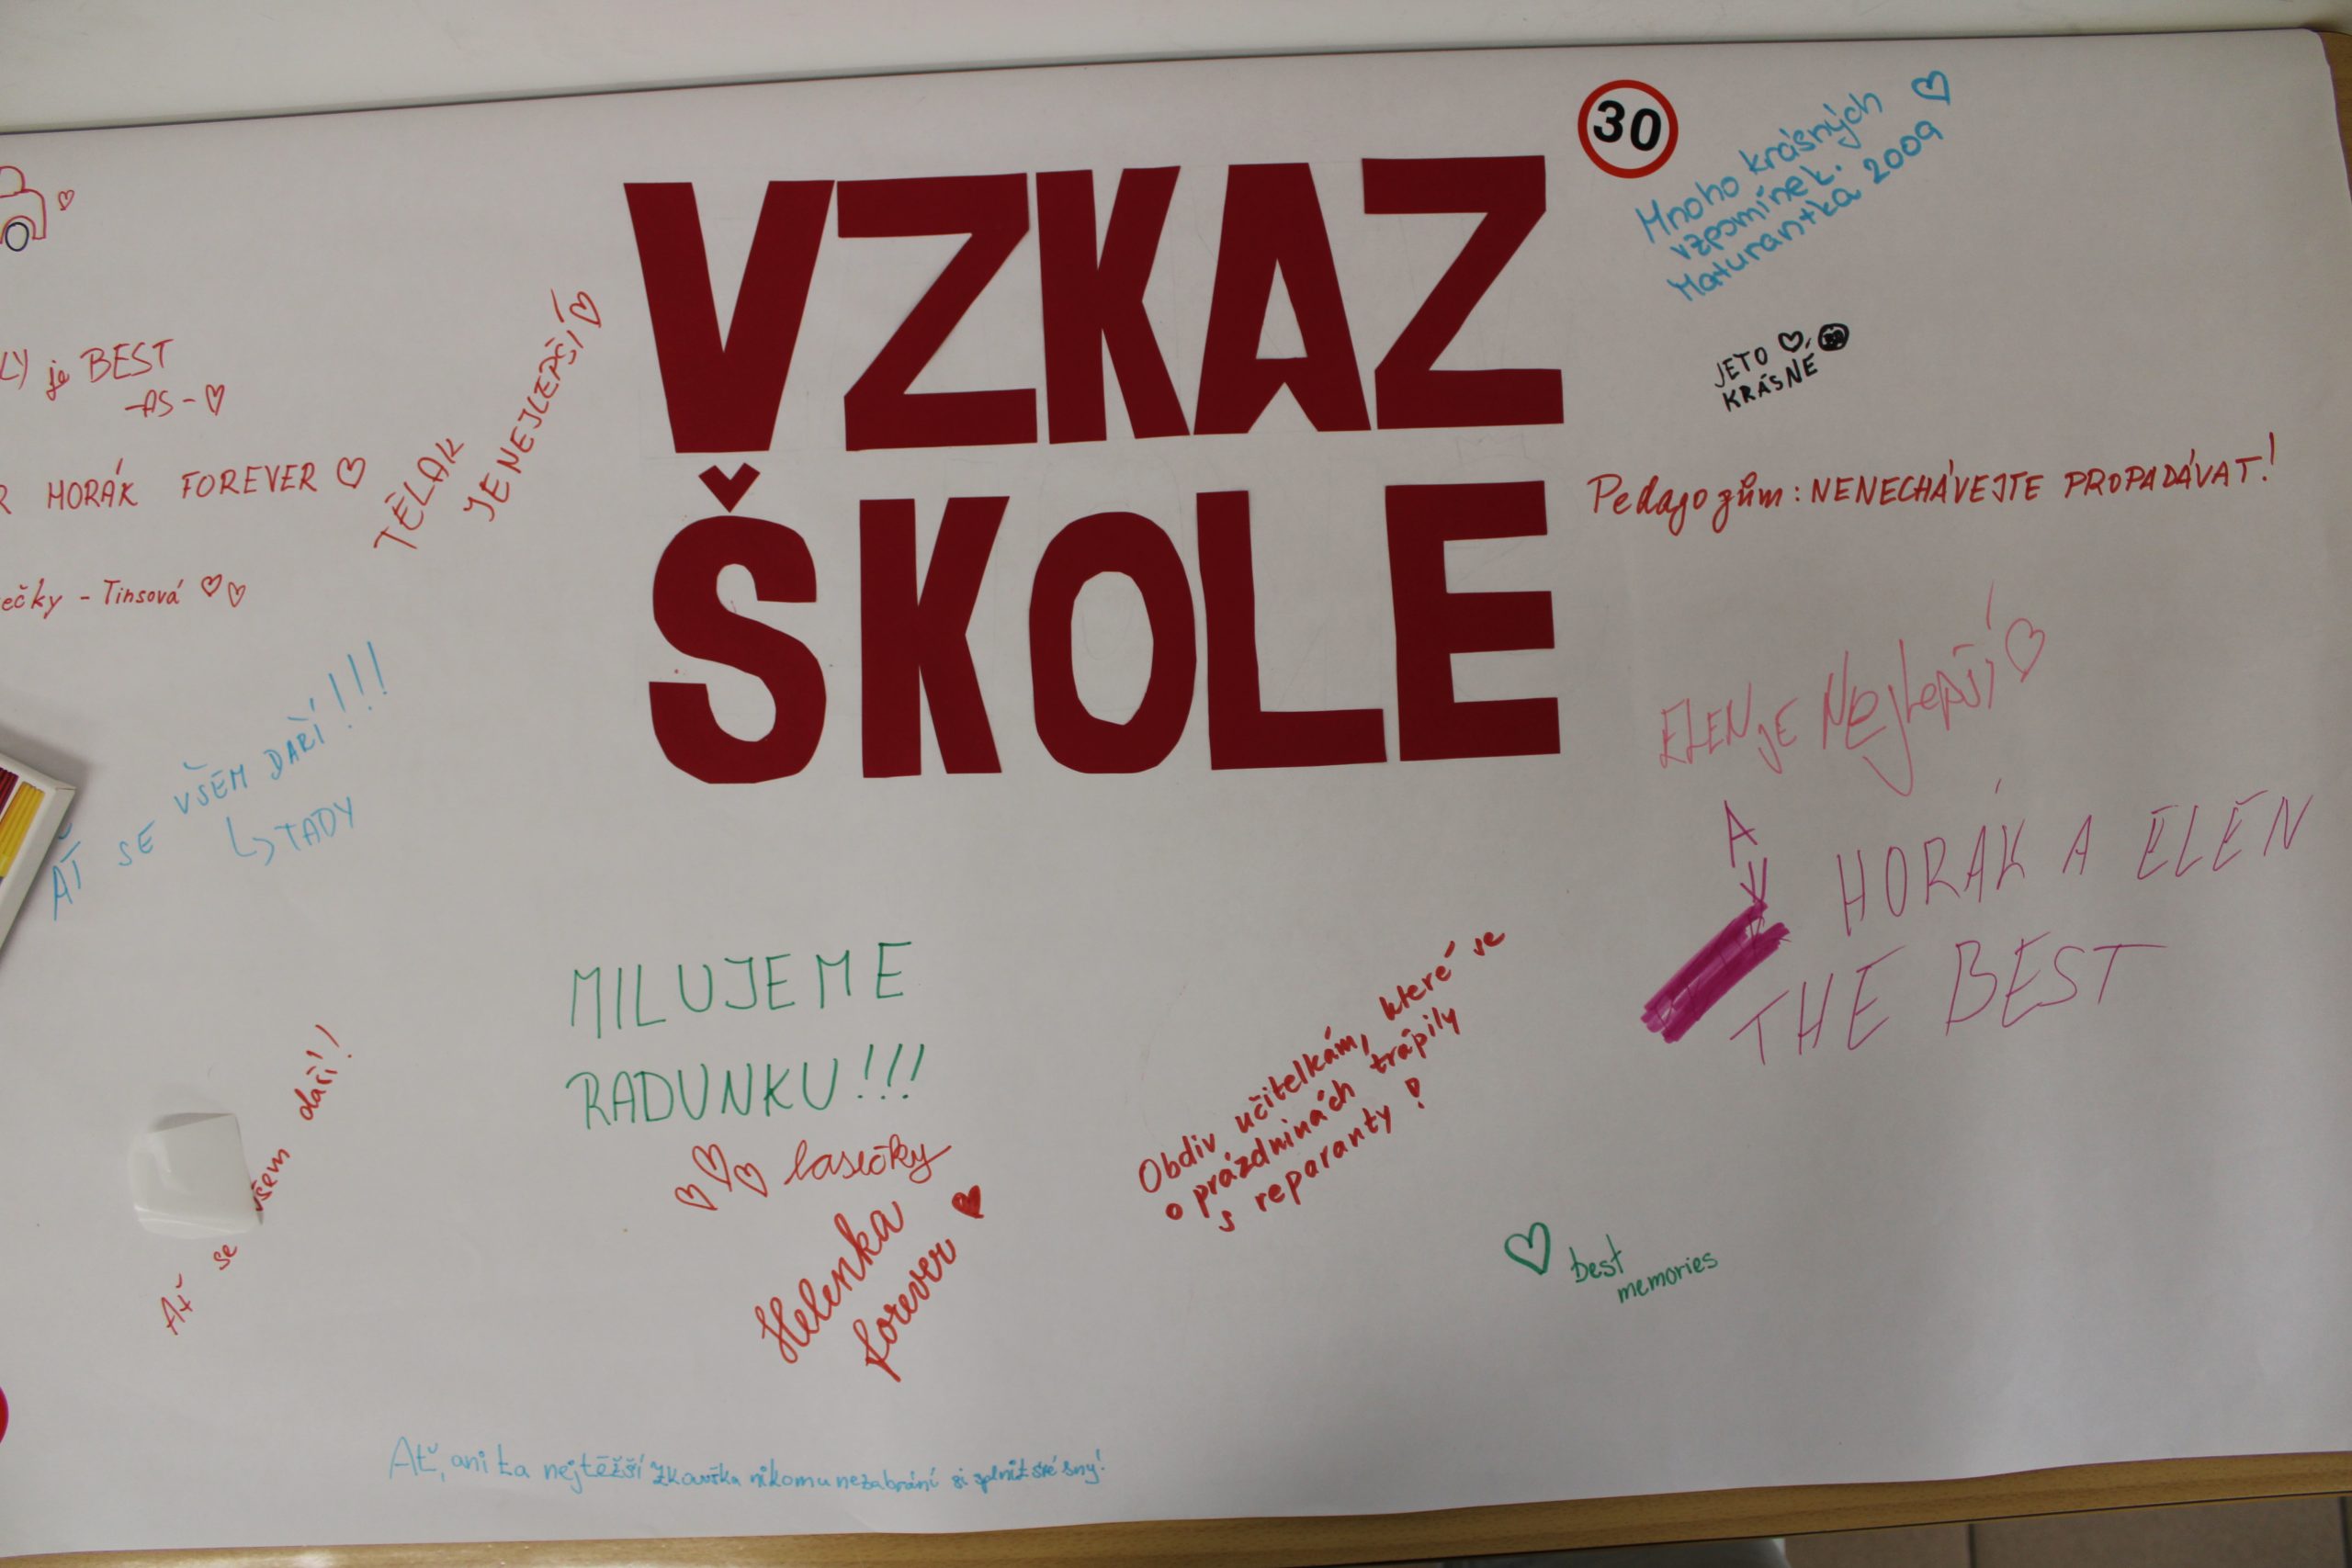 VZKAZ
ŠKOLE
30
Mnoho krásných
vzpomínek.
Maturantka 2009
JE TO
KRÁSNÉ
Pedagogům: NENECHÁVEJTE PROPADÁVAT!
ELEN JE Nejlepší
A
HORÁK A ELÉN
THE BEST
LY je BEST
-AS-
R HORÁK FOREVER
TĚLAK
JE NEJLEPŠÍ
ečky - Tinsová
AŤ SE VŠEM DAŘÍ!!!
TADY
MILUJEME
RADUNKU!!!
lasičky
Helenka
forever
Obdiv učitelkám, které se
o prázdninách trápily
s reparanty!
best
memories
Ať se všem daří!
Ať, ani ta nejtěžší zkouška nikomu nezabrání si splnit své sny!